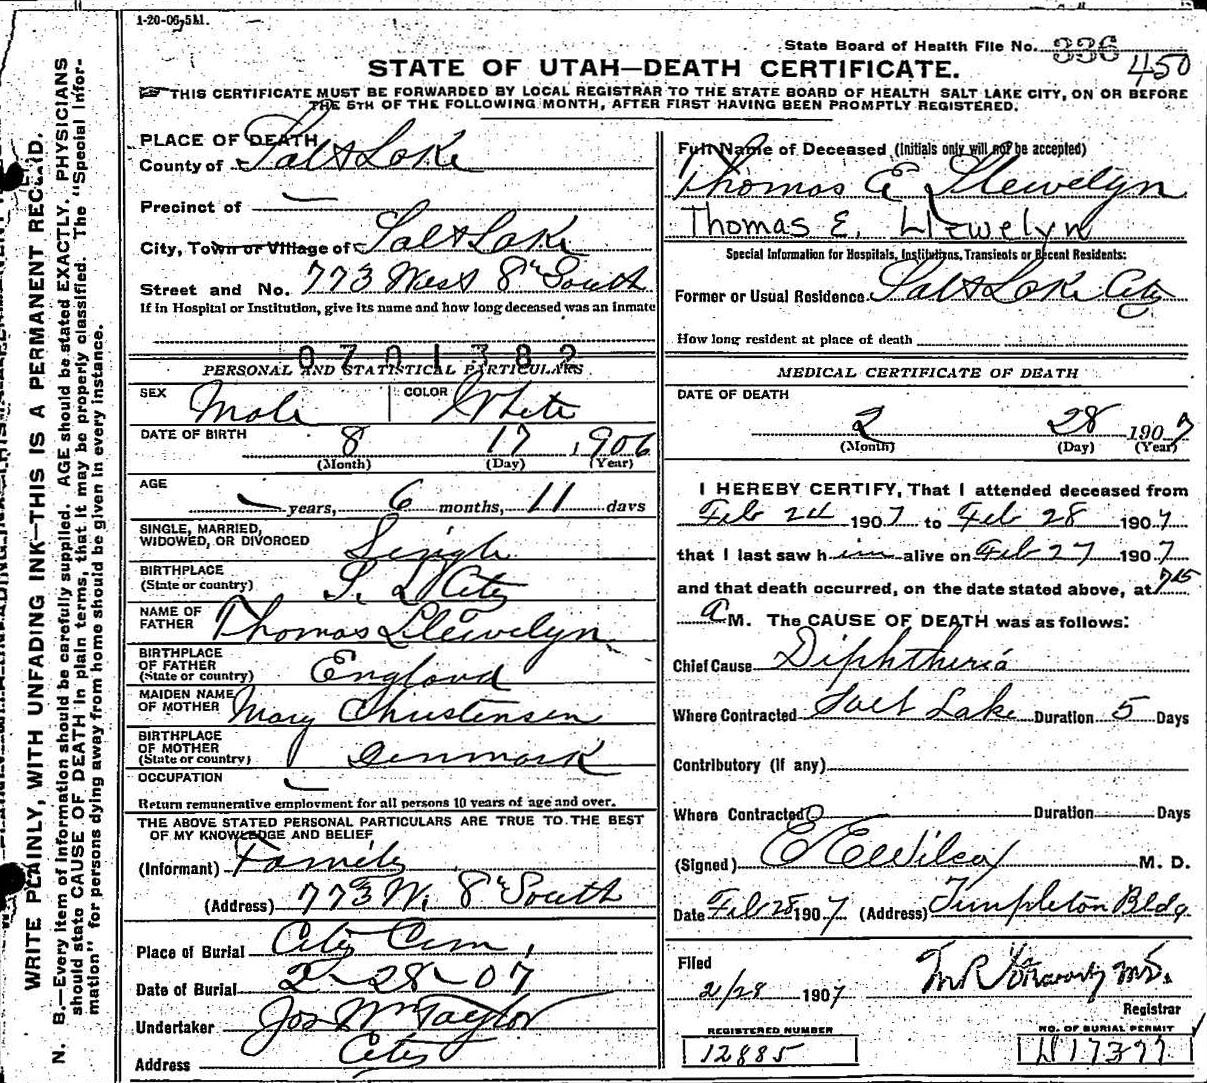 1-20-06, 5M.
State Board of Health File No. 336
450
STATE OF UTAH—DEATH CERTIFICATE.
THIS CERTIFICATE MUST BE FORWARDED BY LOCAL REGISTRAR TO THE STATE BOARD OF HEALTH SALT LAKE CITY, ON OR BEFORE
THE 5TH OF THE FOLLOWING MONTH, AFTER FIRST HAVING BEEN PROMPTLY REGISTERED.
WRITE PLAINLY, WITH UNFADING INK—THIS IS A PERMANENT RECORD.
N. B.—Every item of information should be carefully supplied. AGE should be stated EXACTLY. PHYSICIANS
should state CAUSE OF DEATH in plain terms, that it may be properly classified. The "Special Infor-
mation" for persons dying away from home should be given in every instance.
PLACE OF DEATH
County of Salt Lake
Precinct of
City, Town or Village of Salt Lake
Street and No. 773 West 8th South
If in Hospital or Institution, give its name and how long deceased was an inmate
0701382
PERSONAL AND STATISTICAL PARTICULARS
SEX Male COLOR White
DATE OF BIRTH 8 17 1906
(Month) (Day) (Year)
AGE
years, 6 months, 11 days
SINGLE, MARRIED,
WIDOWED, OR DIVORCED Single
BIRTHPLACE
(State or country) S. L City
NAME OF
FATHER Thomas Llewelyn
BIRTHPLACE
OF FATHER
(State or country) England
MAIDEN NAME
OF MOTHER Mary Christensen
BIRTHPLACE
OF MOTHER
(State or country) Denmark
OCCUPATION
Return remunerative employment for all persons 10 years of age and over.
THE ABOVE STATED PERSONAL PARTICULARS ARE TRUE TO THE BEST
OF MY KNOWLEDGE AND BELIEF
(Informant) Family
(Address) 773 W. 8th South
Place of Burial City Cem.
Date of Burial 2-28-07
Undertaker Jos Wm Taylor
Address City
Full Name of Deceased (Initials only will not be accepted)
Thomas E Llewelyn
Thomas E. Llewelyn
Special Information for Hospitals, Institutions, Transients or Recent Residents:
Former or Usual Residence Salt Lake City
How long resident at place of death
MEDICAL CERTIFICATE OF DEATH
DATE OF DEATH
2 28 1907
(Month) (Day) (Year)
I HEREBY CERTIFY, That I attended deceased from
Feb 1907 to Feb 28 1907
that I last saw him alive on Feb 27 1907
and that death occurred, on the date stated above, at 7 15
a M. The CAUSE OF DEATH was as follows:
Chief Cause Diphtheria
Where Contracted Salt Lake Duration 5 Days
Contributory (if any)
Where Contracted Duration Days
(Signed) E E Wilcox M. D.
Date Feb 28 1907. (Address) Templeton Bldg.
Filed
2/28 1907
Registrar
REGISTERED NUMBER
12885
NO. OF BURIAL PERMIT